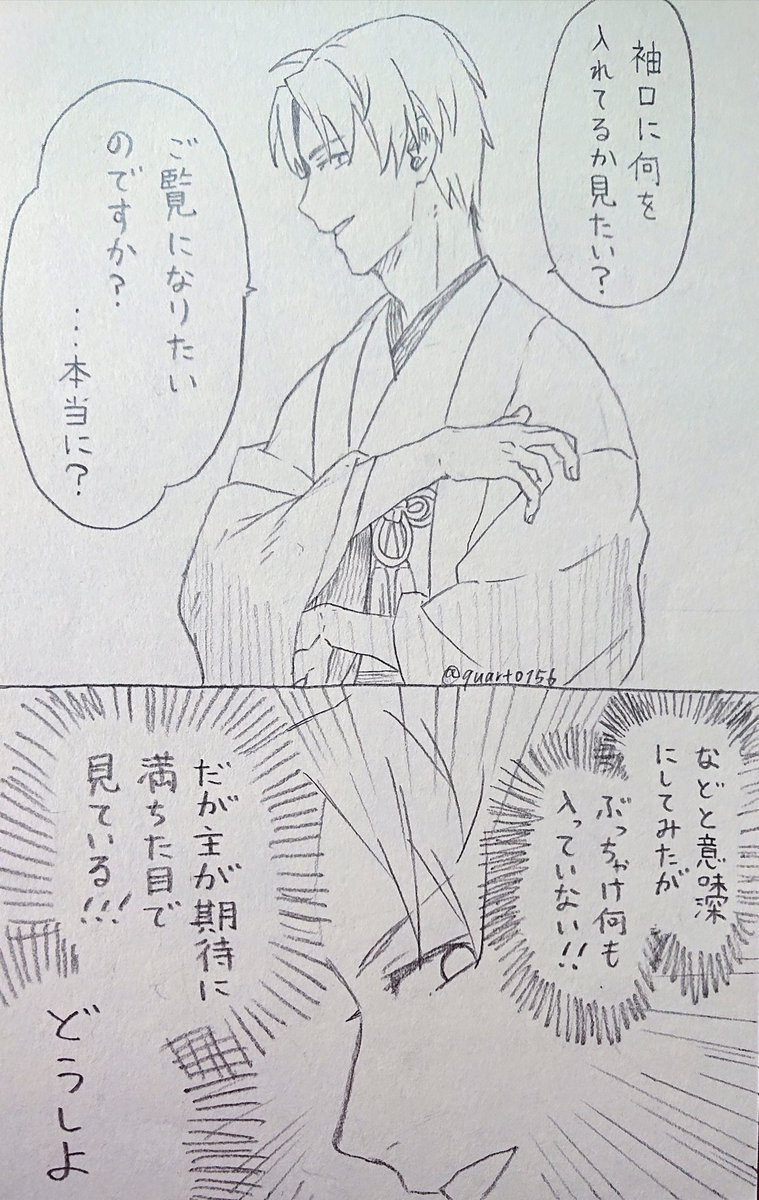 袖口に何を
入れてるか見たい？
ご覧になりたい
のですか？
…本当に？
@quart0156
などと意味深
にしてみたが
ぶっちゃけ何も
入っていない!!
だが主が期待に
満ちた目で
見ている!!!
どうしよ